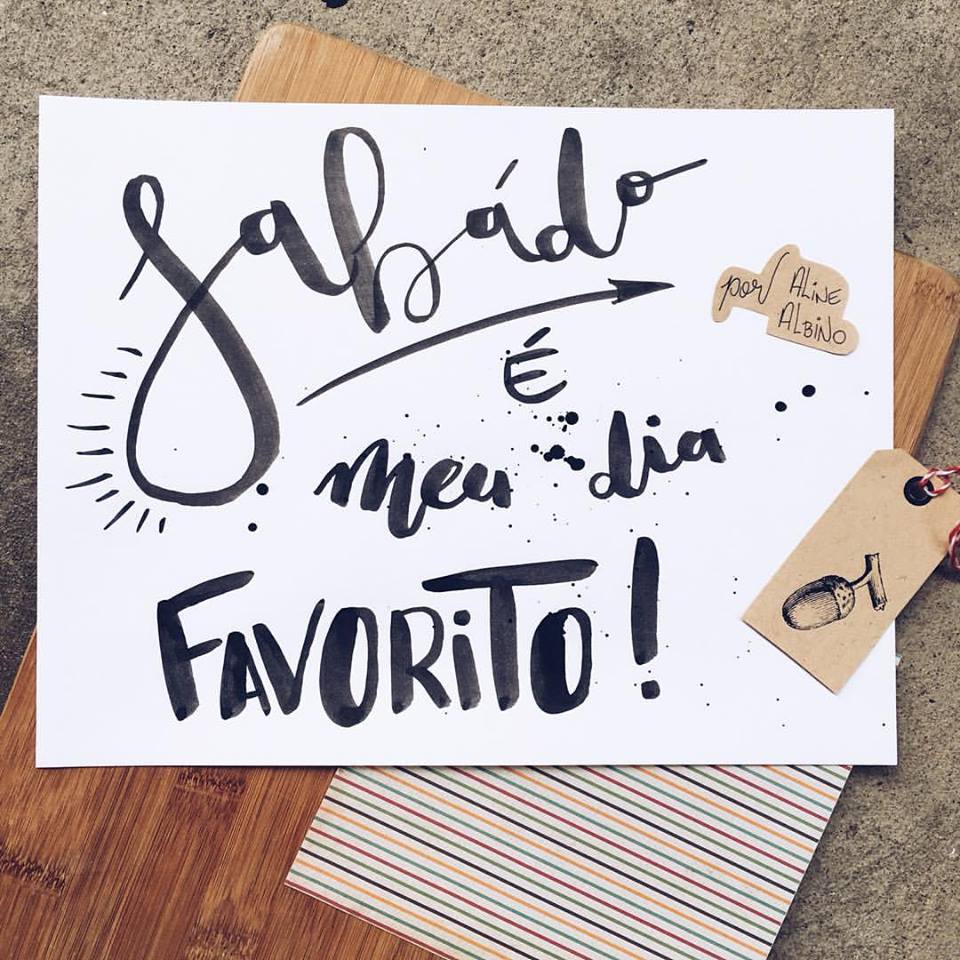 Sabádo
É
meu dia
FAVORiTO!
por ALiNE
ALBiNO